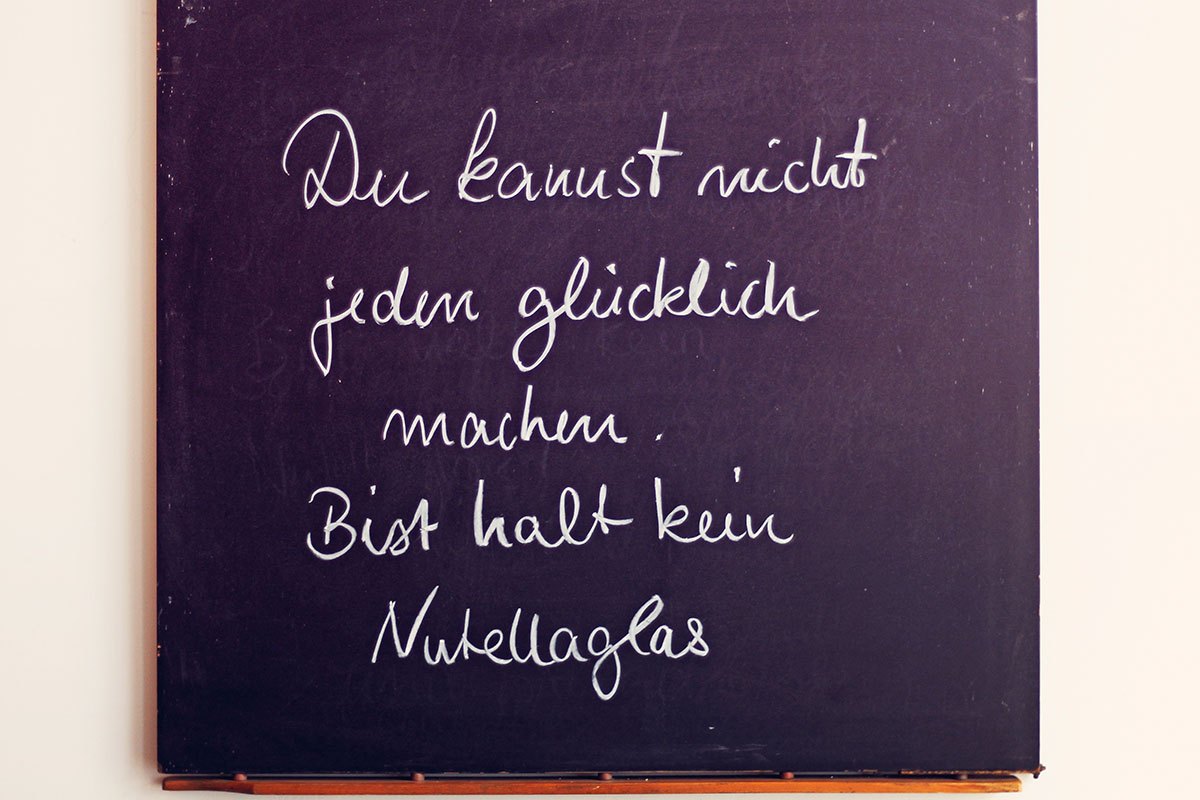 Du kannst nicht
jeden glücklich
machen.
Bist halt kein
Nutellaglas